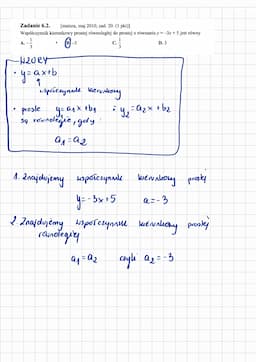 Zadanie 6.2. [matura, maj 2010, zad. 20. (1 pkt)]
Współczynnik kierunkowy prostej równoległej do prostej o równaniu y = -3x + 5 jest równy
A. -1/3 B. -3 C. 1/3 D. 3
WZORY
• y = ax + b
współczynnik kierunkowy
• proste y₁ = a₁x + b₁ i y₂ = a₂x + b₂
są równoległe, gdy
a₁ = a₂
1. Znajdujemy współczynnik kierunkowy prostej
y = -3x + 5 a = -3
2. Znajdujemy współczynnik kierunkowy prostej
równoległej
a₁ = a₂ czyli a₂ = -3